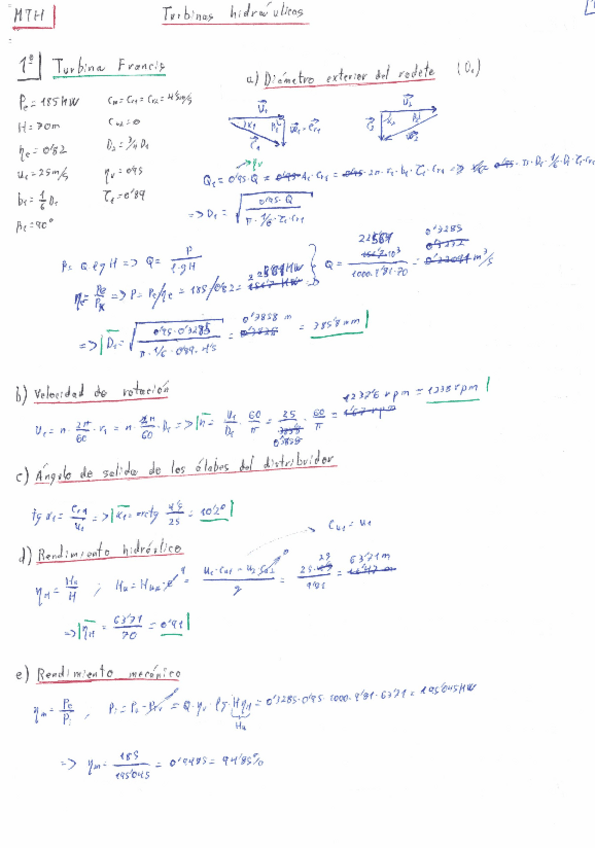 MTH
Turbinas hidráulicas
1º Turbina Francis
a) Diámetro exterior del rodete (D₁)
Pe = 185 kW
H = 70m
ηe = 0'82
u₁ = 25m/s
b₁ = 1/6 D₁
β₁ = 90°
cm = cr1 = cr2 = 4'5m/s
cu2 = 0
D₂ = 3/4 D₁
ηv = 0'95
τ₁ = 0'89
=> D₁ = √(0'95·Q / π·1/6·τ₁·cr1)
P = Q ρ g H => Q = P / ρ·g·H
ηe = Pe/P => P = Pe/ηe = 185/0'82 =
=> D₁ = √(0'95·0'3285 / π·1/6·0'89·4'5) = 0'3858 m = 385'8 mm
b) Velocidad de rotación
u₁ = n · 2π/60 · r₁ = n π/60 · D₁ => n = u₁/D₁ · 60/π = 25/0'3858 · 60/π = 1237'6 rpm ≈ 1238 rpm
c) Ángulo de salida de los álabes del distribuidor
tg α₁ = cr1/u₁ => α₁ = arctg 4'5/25 = 10'2°
cu1 = u₁
d) Rendimiento hidráulico
ηH = Hu/H ; Hu = = u₁·cu1 - u₂·cu2 / g = 25·25 / 9'81 = 63'71 m
=> ηH = 63'71/70 = 0'91
e) Rendimiento mecánico
ηm = Pe/Pi , = Q·ηv·ρg·H·ηH = 0'3285·0'95·1000·9'81·63'71 = 195'045 kW
Hu
=> ηm = 185/195'045 = 0'9485 = 94'85%